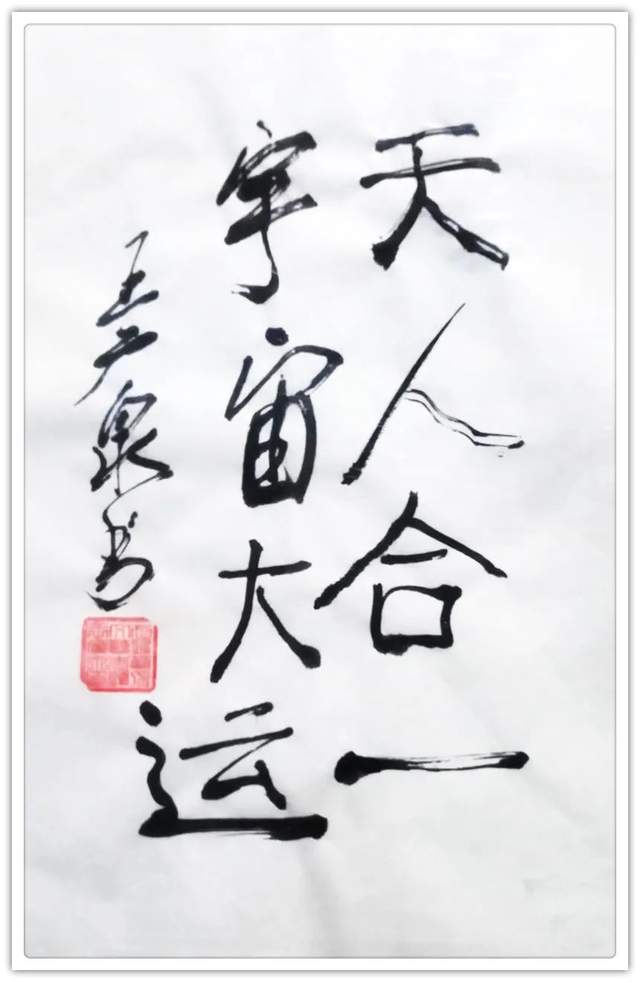 天人合一
宇宙大运
王广泉书